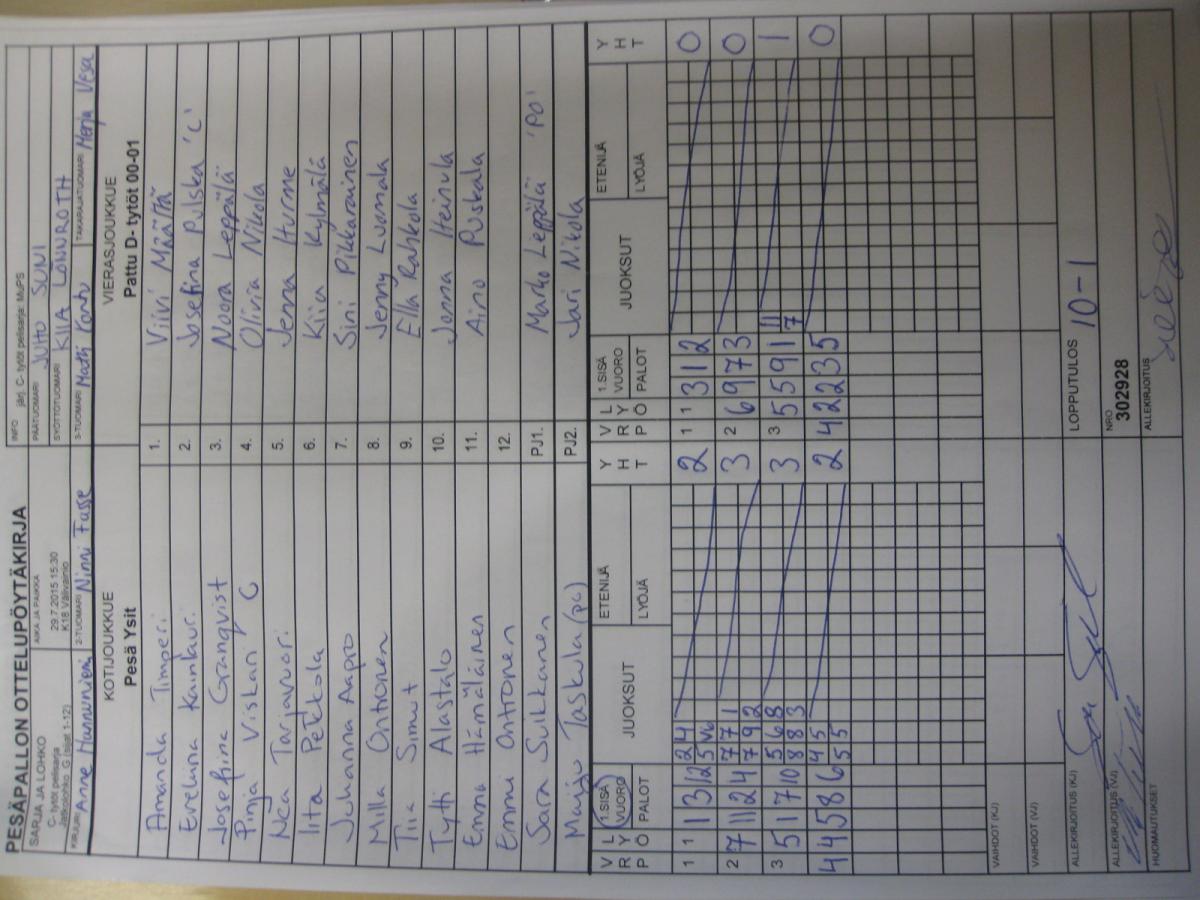 PESÄPALLON OTTELUPÖYTÄKIRJA
INFO järj. C- tytöt pelisarja: MuPS
SARJA JA LOHKO
C- tytöt pelisarja
Jatkolohko G (sijat 1-12)
AIKA JA PAIKKA
29.7.2015 15:30
K18 Välivainio
PÄÄTUOMARI JUHO SUNI
SYÖTTÖTUOMARI KIIA LÖNNROTH
KIRJURI Anne Hannuniemi
2-TUOMARI Ninni Fasse
3-TUOMARI Matti Kontu
TAKARAJATUOMARI Merja Vesa
KOTIJOUKKUE
Pesä Ysit
VIERASJOUKKUE
Pattu D- tytöt 00-01
Amanda Timperi 1. Viivi Määttä
Eveliina Kainlauri 2. Josefina Pulska 'C'
Josefina Granqvist 3. Noora Leppälä
Pinja Viskari C 4. Olivia Nikola
Nea Tarjavuori 5. Jenna Hurme
Iita Pekkola 6. Kiia Kylmälä
Juhanna Aapro 7. Sini Pikkarainen
Milla Ontronen 8. Jenny Luomala
Tiia Simut 9. Ella Rahkola
Tytti Alastalo 10. Jonna Heinula
Emma Hämäläinen 11. Aino Puskala
Emmi Ontronen 12.
Sara Suikkanen PJ1. Marko Leppälä 'PO'
Maiju Taskula (pc) PJ2. Jari Nikola
V R P L Y Ö 1.SISÄ VUORO PALOT JUOKSUT ETENIJÄ LYÖJÄ Y H T V R P L Y Ö 1.SISÄ VUORO PALOT JUOKSUT ETENIJÄ LYÖJÄ Y H T
1 1 1 3 12 2 4 2 1 1 3 1 2 0
5
2 7 11 2 4 7 7 1 3 2 6 9 7 3 0
7 9 2
3 5 1 7 10 5 6 8 3 3 5 5 9 1 11 1
8 8 3 7
4 4 5 8 6 4 5 2 2 4 2 2 3 5 0
5 5
VAIHDOT (KJ)
VAIHDOT (VJ)
ALLEKIRJOITUS (KJ)
LOPPUTULOS 10-1
ALLEKIRJOITUS (VJ)
NRO
302928
HUOMAUTUKSET
ALLEKIRJOITUS